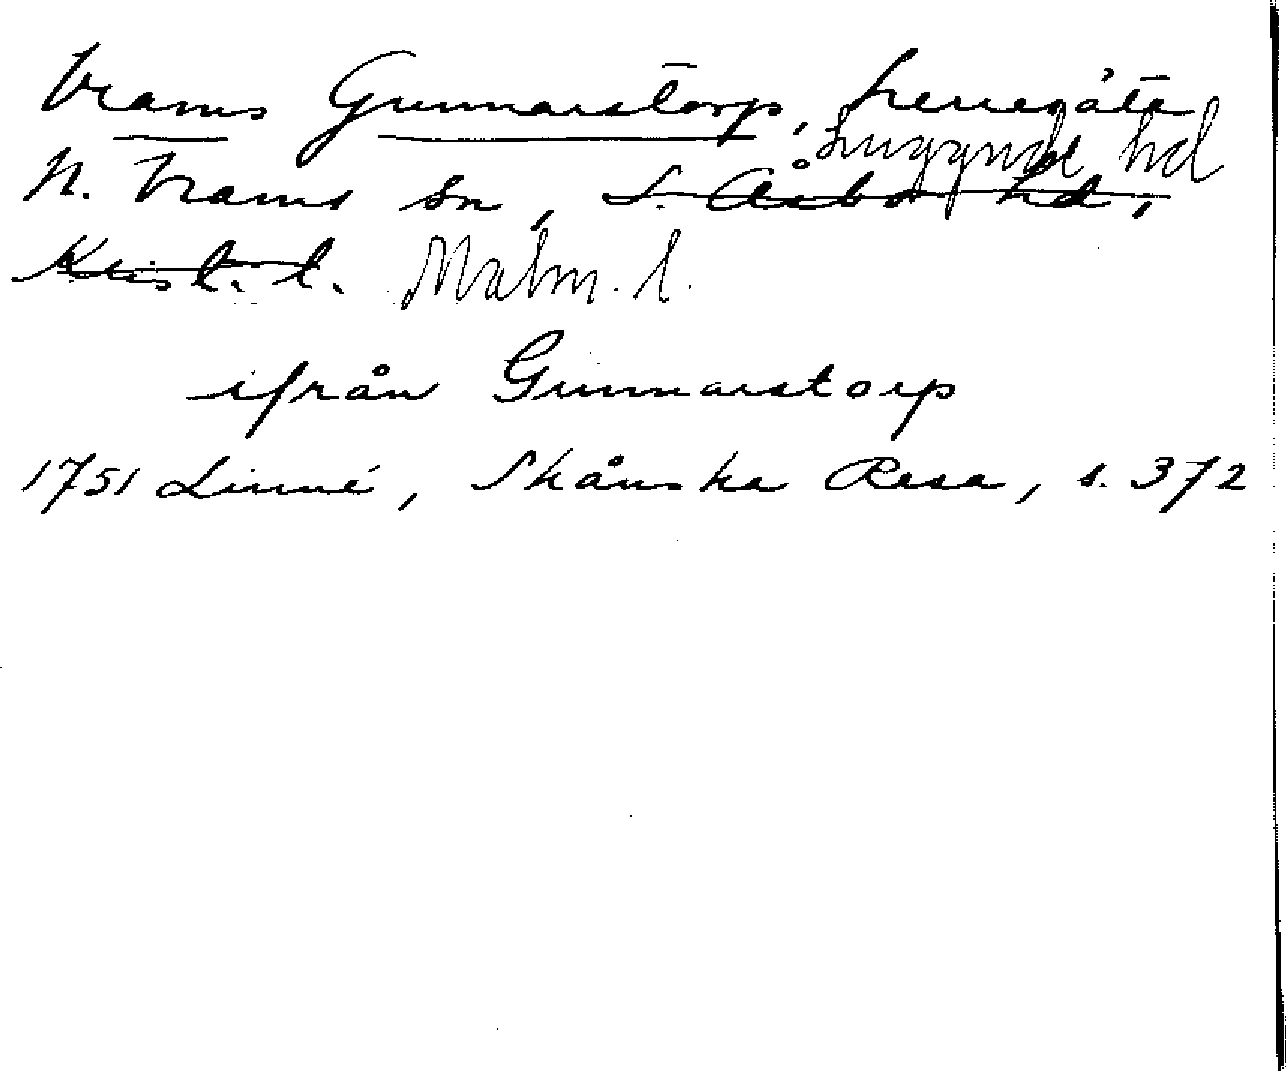 Vrams Gunnarstorp, herregåta
Luggude hd
N. Vrams sn, S. Åsbo hd,
Krist. l. Malm. l.
ifrån Gunnarstorp
1751 Linné, Skånska Resa, s. 372